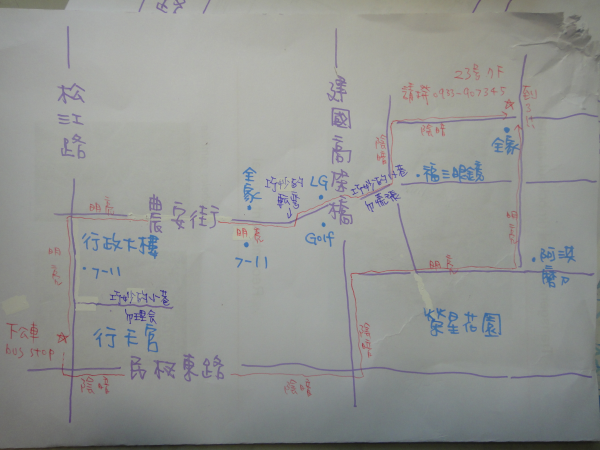 松江路
建國高架橋
23号
請撥0933-907345
到了!!
陰暗
陰暗
全家
全家
巧妙的
轉彎
LG
巧妙的小巷
福三眼鏡
明亮
農安街
明亮
7-11
Golf
明亮
行政大樓
7-11
明亮
明亮
阿漢
磨刀
巧妙的小巷
下公車
bus stop
行天宮
榮星花園
陰暗
民權東路
陰暗
陰暗